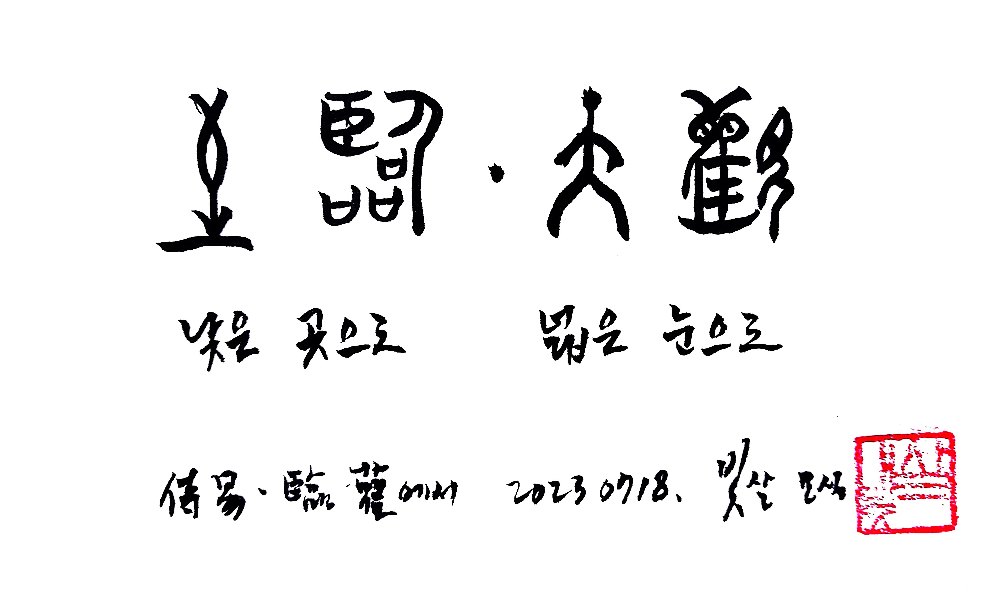 至臨・大觀
낮은 곳으로 넓은 눈으로
侍易・臨雚에서 2023 0718. 빛살 모심